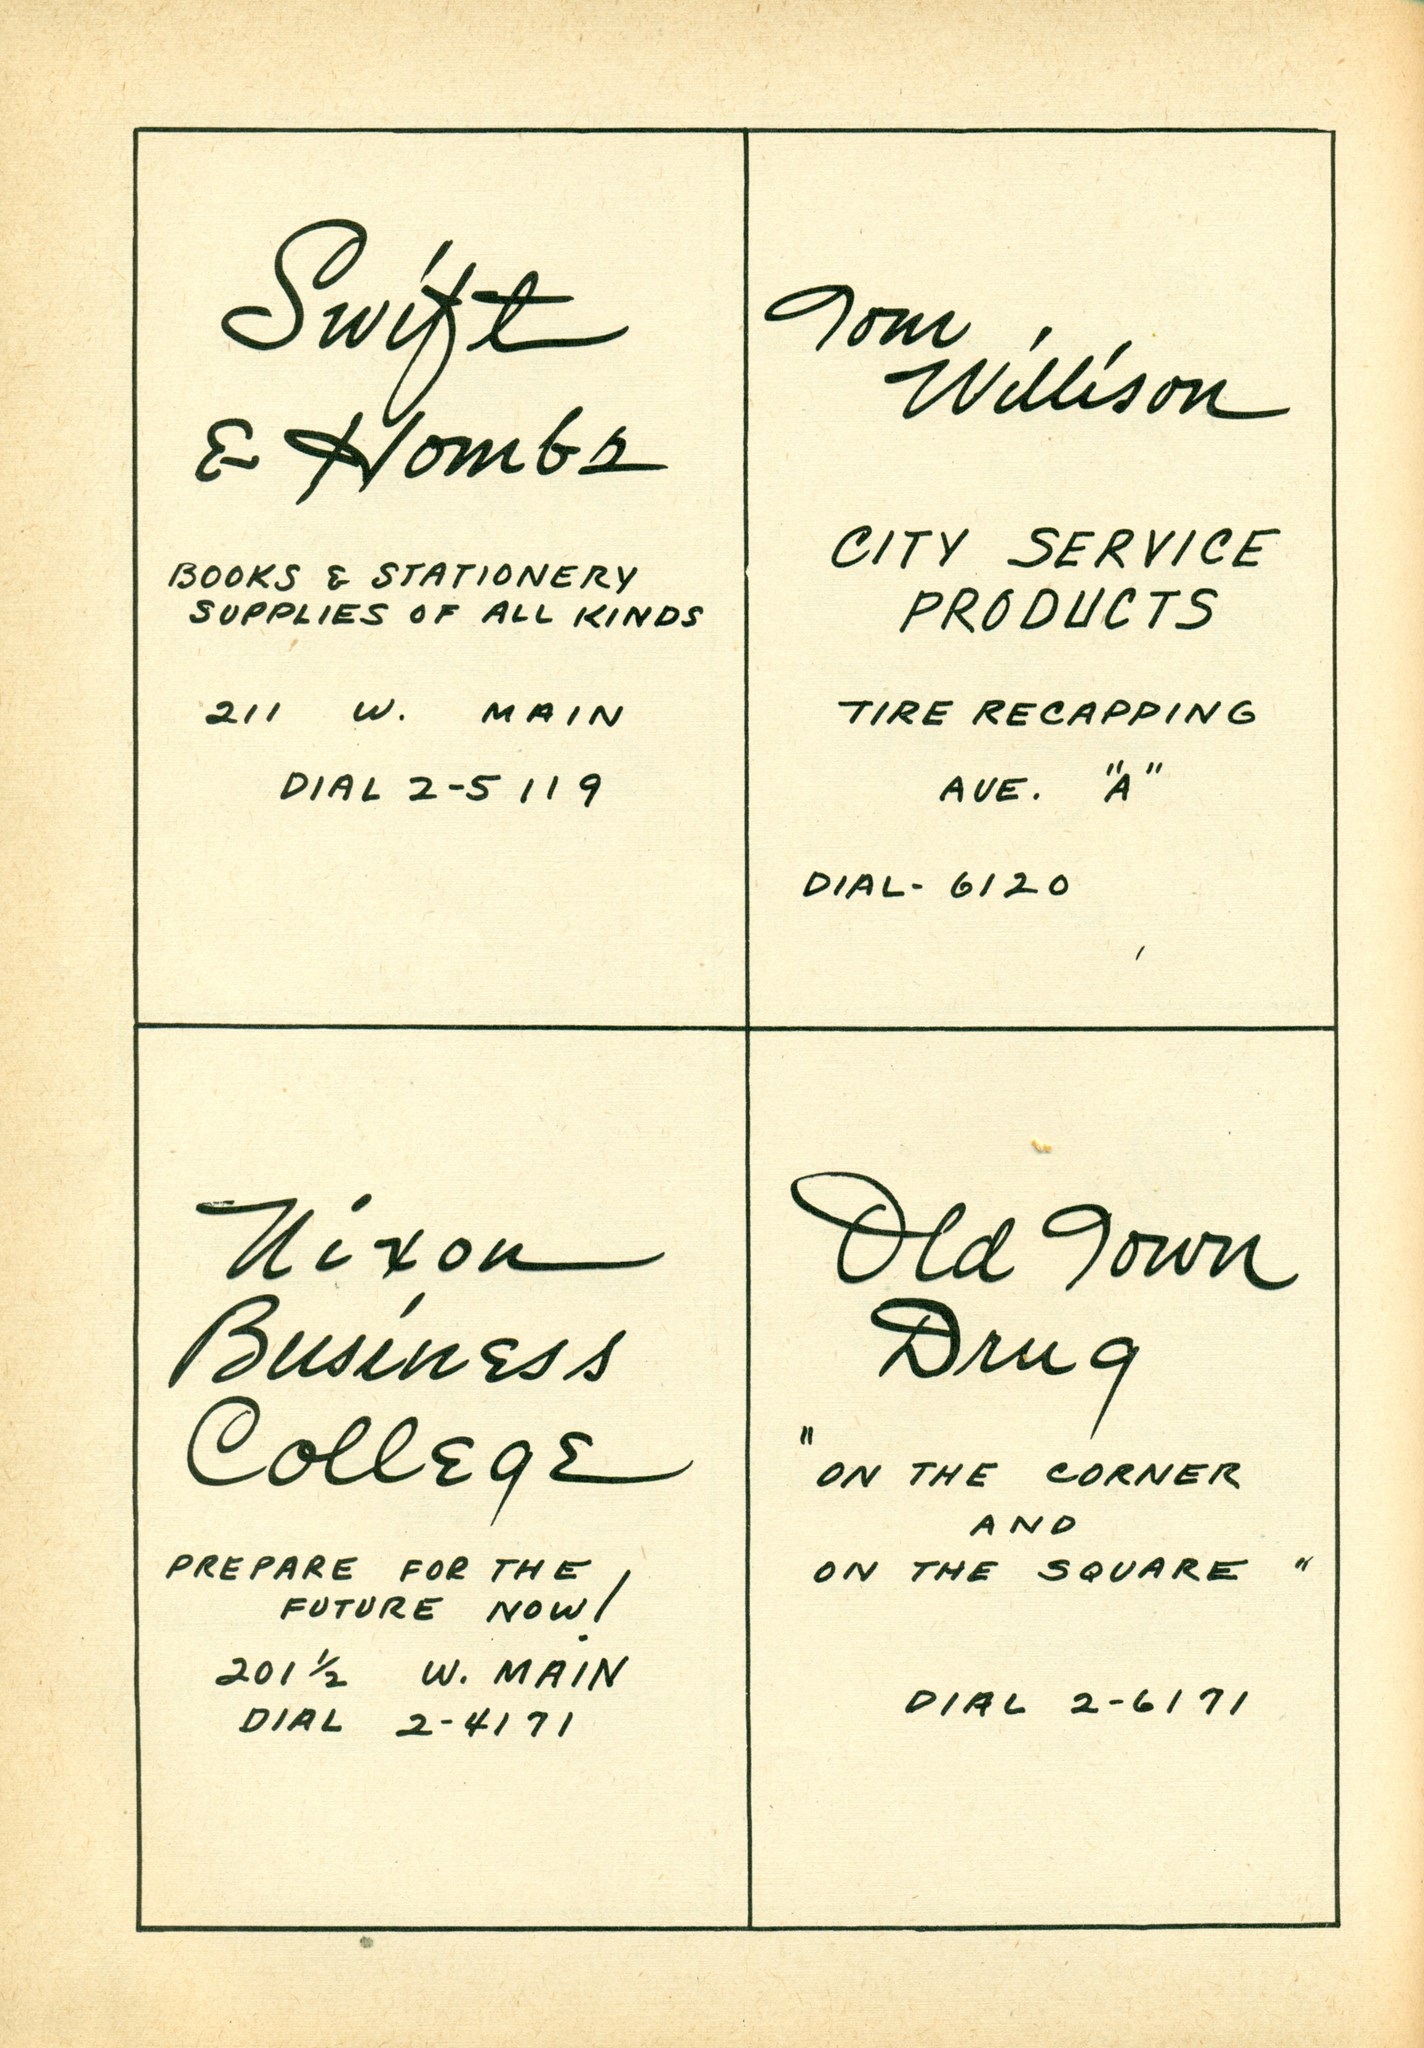 Swift
& Hombs
BOOKS & STATIONERY
SUPPLIES OF ALL KINDS
211 W. MAIN
DIAL 2-5119
Tom
Willison
CITY SERVICE
PRODUCTS
TIRE RECAPPING
AVE. "A"
DIAL- 6120
Nixon
Business
College
PREPARE FOR THE
FUTURE NOW!
201 1/2 W. MAIN
DIAL 2-4171
Old Town
Drug
"ON THE CORNER
AND
ON THE SQUARE"
DIAL 2-6171